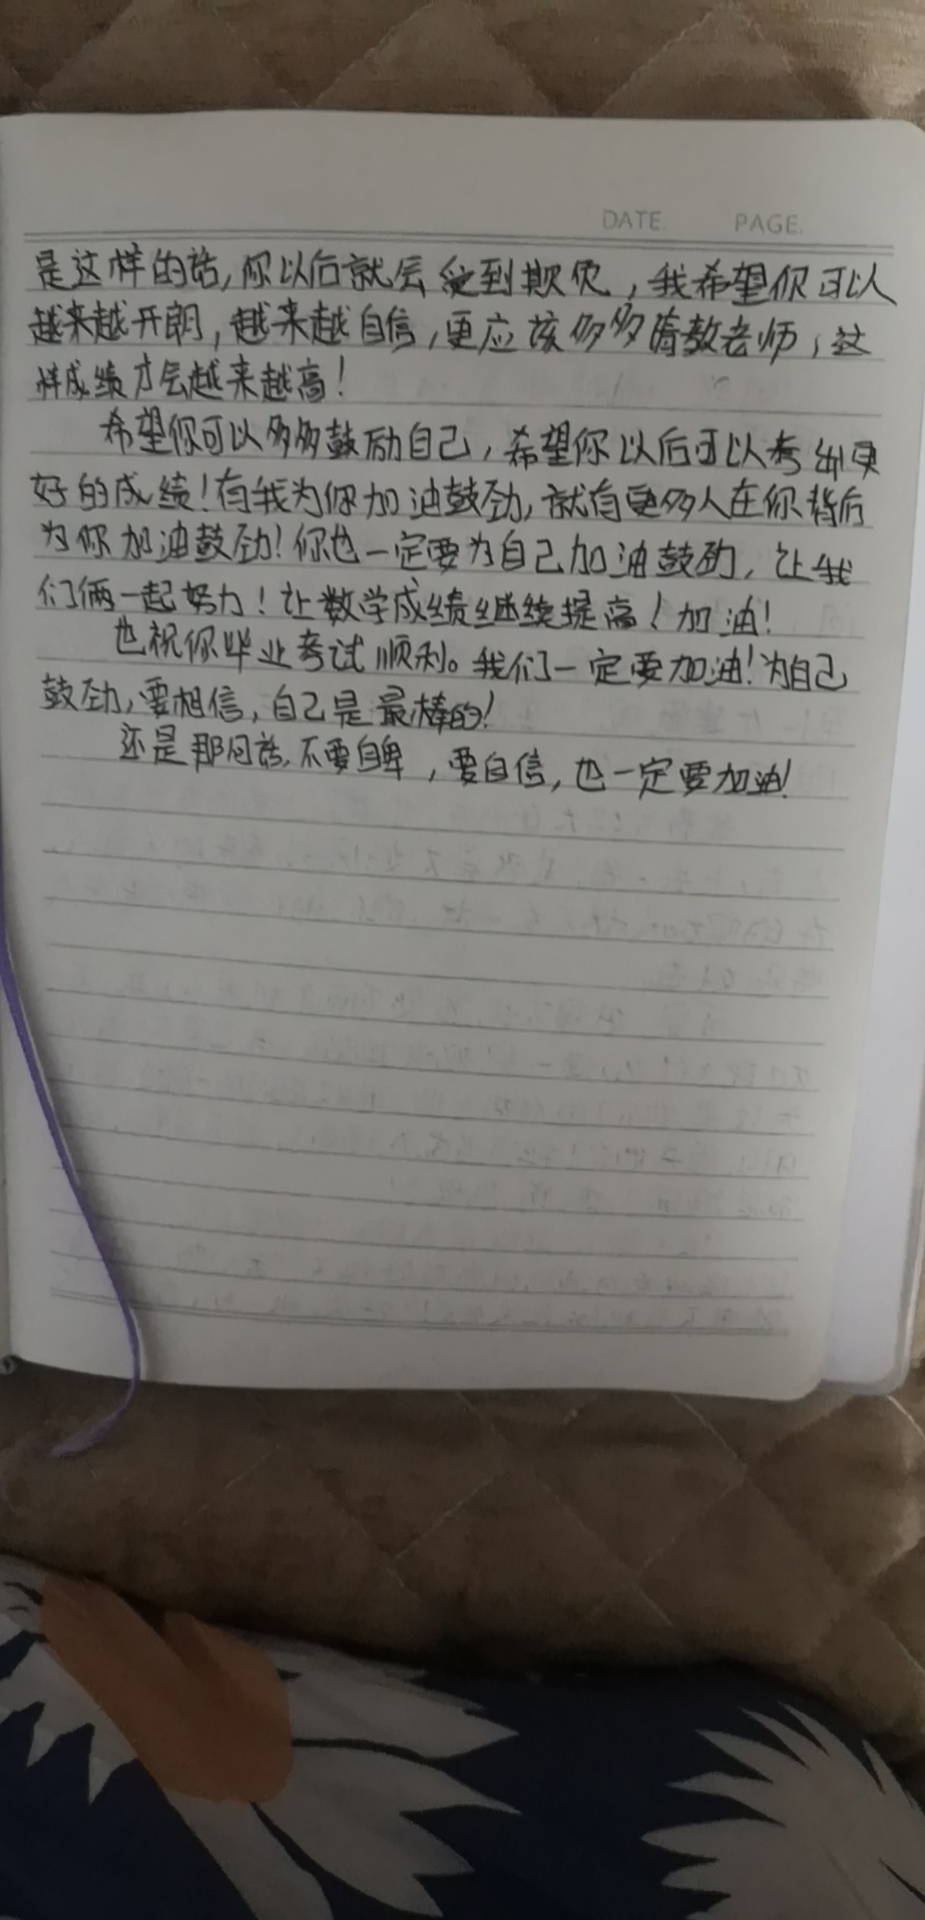 DATE. PAGE.
是这样的话,你以后就会受到欺负,我希望你可以
越来越开朗,越来越自信,更应该多多请教老师,这
样成绩才会越来越高!
希望你可以多多鼓励自己,希望你以后可以考出更
好的成绩!有我为你加油鼓劲,就有更多人在你背后
为你加油鼓劲!你也一定要为自己加油鼓劲,让我
们俩一起努力!让数学成绩继续提高!加油!
也祝你毕业考试顺利。我们一定要加油!为自己
鼓劲,要相信,自己是最棒的!
还是那句话,不要自卑,要自信,也一定要加油!